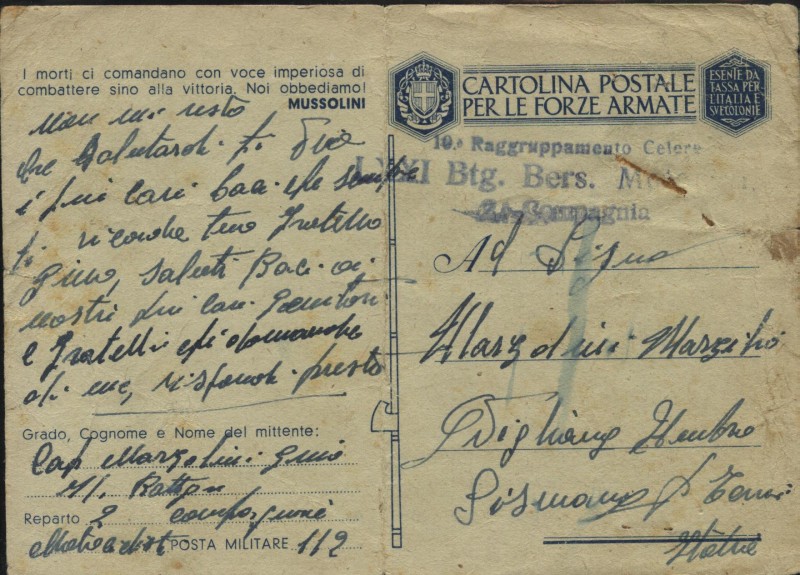 I morti ci comandano con voce imperiosa di
combattere sino alla vittoria. Noi obbediamo!
MUSSOLINI
non mi resto
che Salutardi. ti
i piu cari baci che sempre
ti ricorda tuo fratello
Gino, Saluti Baci ai
nostri piu cari Genitori
e fratelli chi domanda
di me, rispondi presto
Grado, Cognome e Nome del mittente:
Cap Marzolini Gino
Reparto 2 compagnia
POSTA MILITARE 112
CARTOLINA POSTALE
PER LE FORZE ARMATE
ESENTE DA
TASSA PER
L'ITALIA E
SUE COLONIE
10.° Raggruppamento Celere
Btg. Bers.
Compagnia
Al Signo
Marzolini Marzilio
Dighiano Umbro
Sismano p Terni